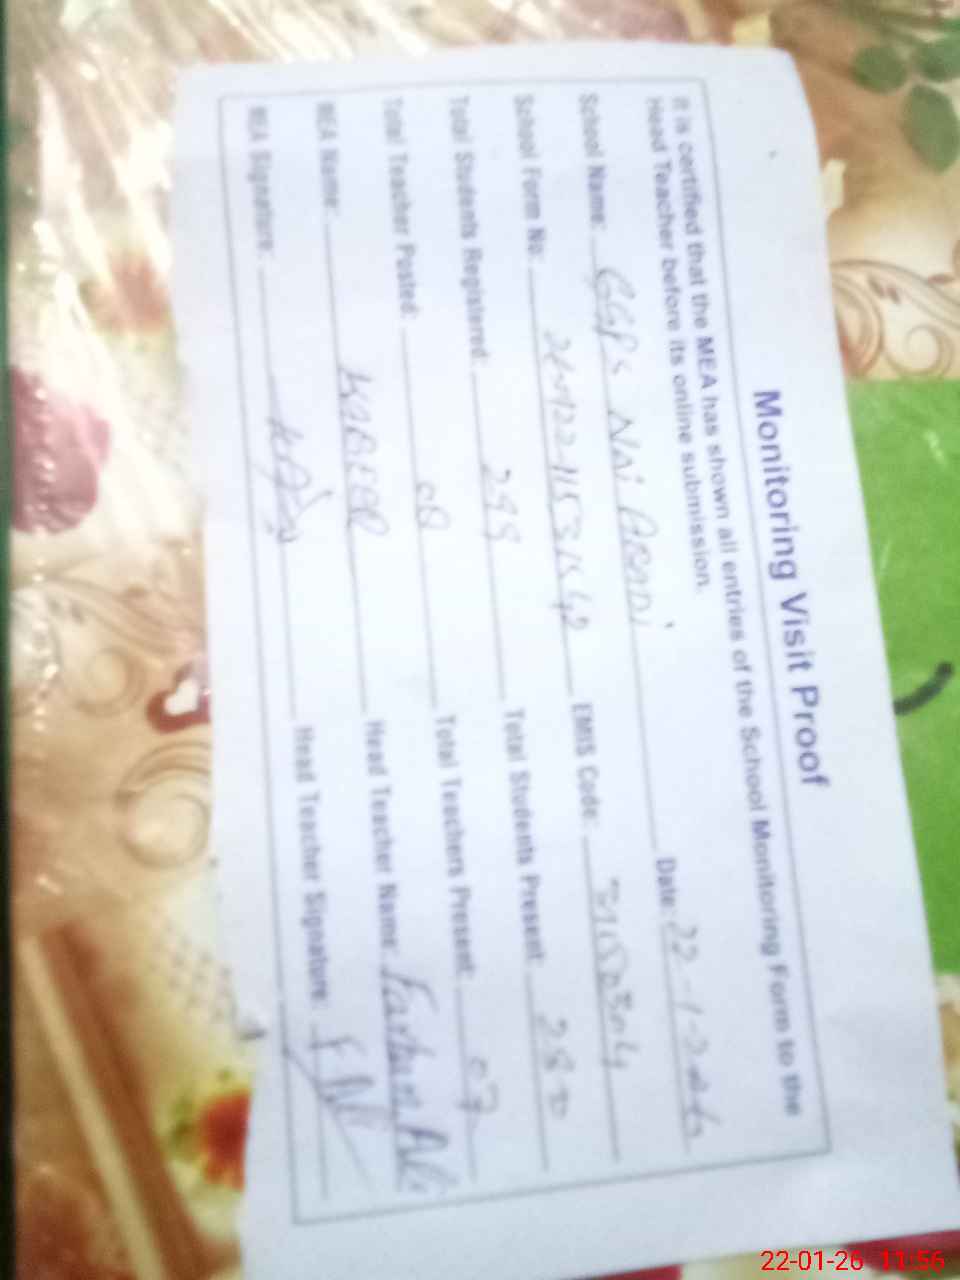 Monitoring Visit Proof
It is certified that the MEA has shown all entries of the School Monitoring Form to the
Head Teacher before its online submission.
School Name: GGPS Date: 22-1-2026
School Form No: EMIS Code:
Total Students Registered: 299 Total Students Present: 280
Total Teacher Posted: 08 Total Teachers Present: 07
MEA Name: KABEER Head Teacher Name: Ali
MEA Signature: Head Teacher Signature:
22-01-26 11:56